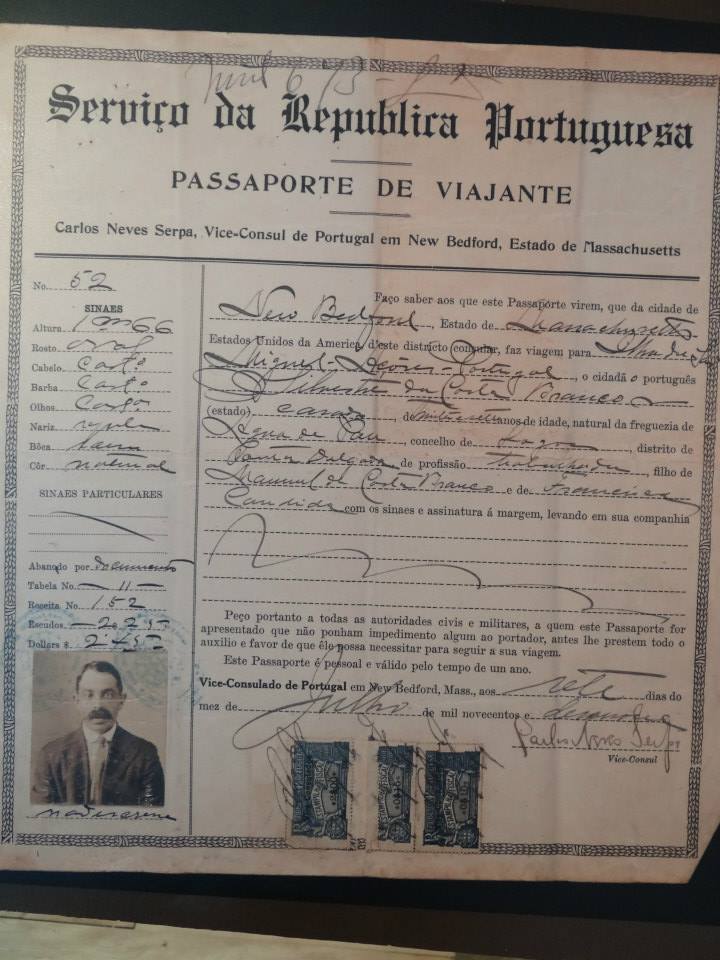 Serviço da Republica Portuguesa
PASSAPORTE DE VIAJANTE
Carlos Neves Serpa, Vice-Consul de Portugal em New Bedford, Estado de Massachusetts
No. 52
SINAES
Altura 1m66
Rosto oval
Cabelo cast.º
Barba cast.º
Olhos cast.º
Nariz
Bôca
Côr natural
SINAES PARTICULARES
Abonado por documento
Tabela No. 11
Receita No. 152
Escudos
Dollars $
Faço saber aos que este Passaporte virem, que da cidade de
New Bedford, Estado de Massachusetts
Estados Unidos da America, d'este districto consular, faz viagem para Ilha de São
Miguel - Açôres - Portugal, o cidadão português
Silvestre da Costa Branco
(estado) casado, de anos de idade, natural da freguezia de
Agua de Pau, concelho de Lagoa, distrito de
Ponta Delgada, de profissão trabalhador, filho de
Manuel da Costa Branco e de Francisca
Candida com os sinaes e assinatura á margem, levando em sua companhia
Peço portanto a todas as autoridades civis e militares, a quem este Passaporte for
apresentado que não ponham impedimento algum ao portador, antes lhe prestem todo o
auxilio e favor de que êle possa necessitar para seguir a sua viagem.
Este Passaporte é pessoal e válido pelo tempo de um ano.
Vice-Consulado de Portugal em New Bedford, Mass., aos sete dias do
mez de Julho de mil novecentos e desenove
Carlos Neves Serpa
Vice-Consul